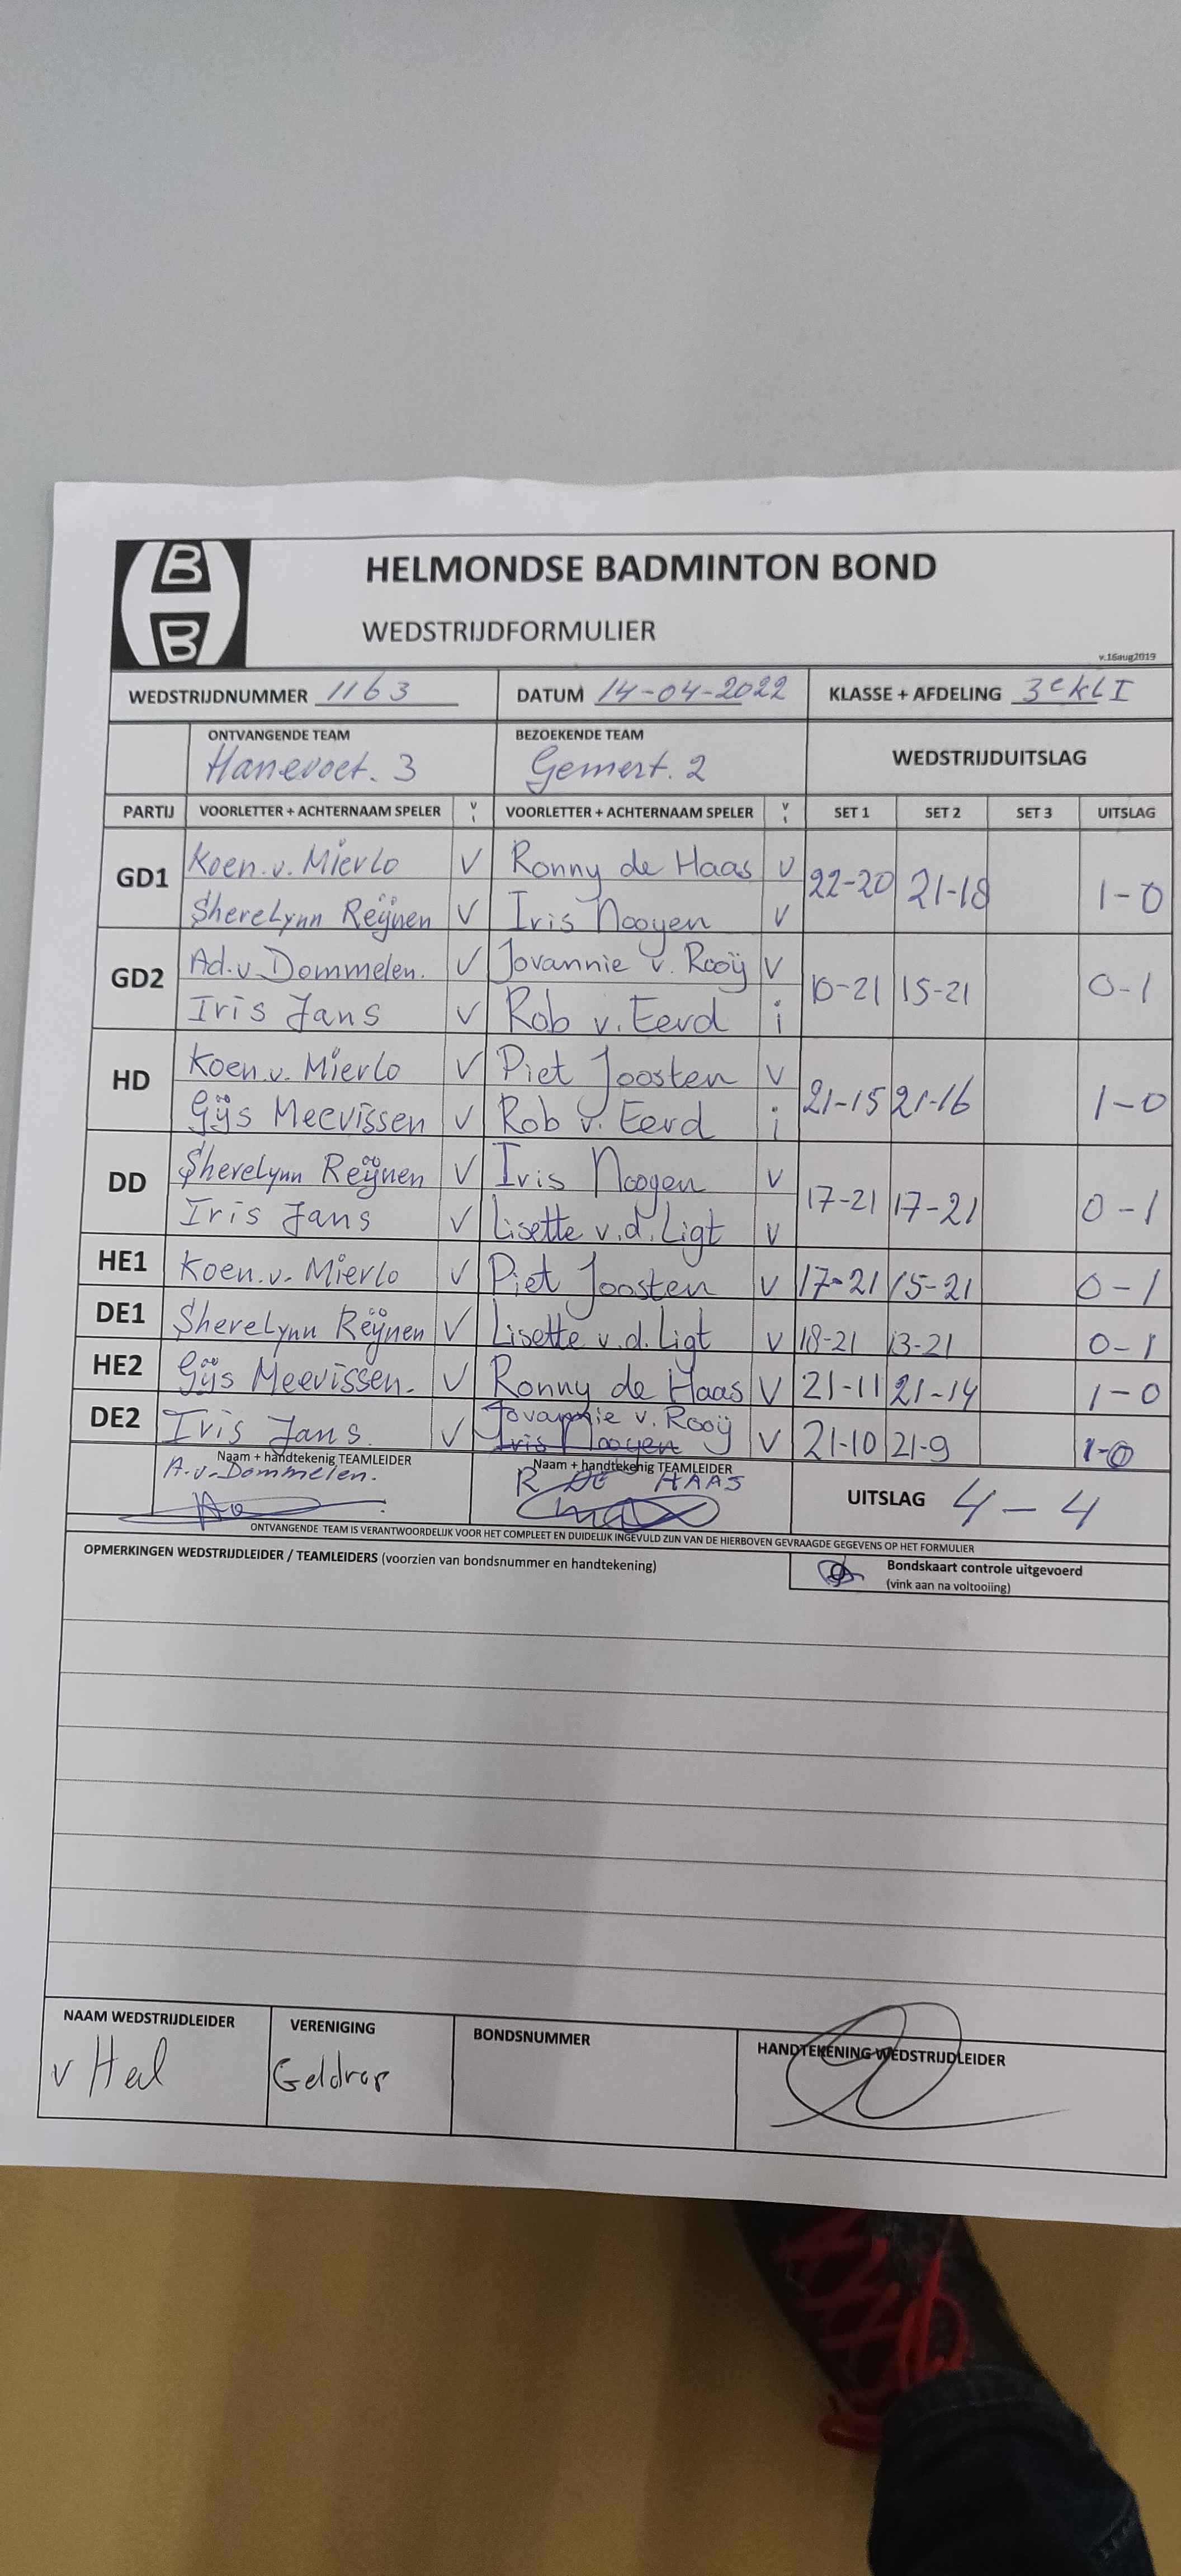 B
B
HELMONDSE BADMINTON BOND
WEDSTRIJDFORMULIER
v.16aug2019
WEDSTRIJDNUMMER 1163 DATUM 14-04-2022 KLASSE + AFDELING 3e kl I
ONTVANGENDE TEAM BEZOEKENDE TEAM WEDSTRIJDUITSLAG
Hanevoet. 3 Gemert. 2
PARTIJ VOORLETTER + ACHTERNAAM SPELER V i VOORLETTER + ACHTERNAAM SPELER V i SET 1 SET 2 SET 3 UITSLAG
GD1 Koen.v. Mierlo V Ronny de Haas V 22-20 21-18 1-0
Sherelynn Reijnen V Iris Nooyen V
GD2 Ad.v Dommelen. V Jovannie v. Rooij V 10-21 15-21 0-1
Iris Jans V Rob v. Eerd i
HD Koen.v. Mierlo V Piet Joosten V 21-15 21-16 1-0
Gijs Meevissen V Rob v. Eerd i
DD Sherelynn Reijnen V Iris Nooyen V 17-21 17-21 0-1
Iris Jans V Lisette v.d. Ligt V
HE1 Koen.v. Mierlo V Piet Joosten V 17-21 15-21 0-1
DE1 Sherelynn Reijnen V Lisette v.d. Ligt V 18-21 13-21 0-1
HE2 Gijs Meevissen. V Ronny de Haas V 21-11 21-14 1-0
DE2 Iris Jans. V Jovannie v. Rooij V 21-10 21-9 1-0
Iris Nooyen
Naam + handtekenig TEAMLEIDER Naam + handtekenig TEAMLEIDER
A.v. Dommelen. R DE HAAS UITSLAG 4-4
ONTVANGENDE TEAM IS VERANTWOORDELIJK VOOR HET COMPLEET EN DUIDELIJK INGEVULD ZIJN VAN DE HIERBOVEN GEVRAAGDE GEGEVENS OP HET FORMULIER
OPMERKINGEN WEDSTRIJDLEIDER / TEAMLEIDERS (voorzien van bondsnummer en handtekening) Bondskaart controle uitgevoerd
(vink aan na voltooiing)
NAAM WEDSTRIJDLEIDER VERENIGING BONDSNUMMER HANDTEKENING WEDSTRIJDLEIDER
v Hel Geldrop